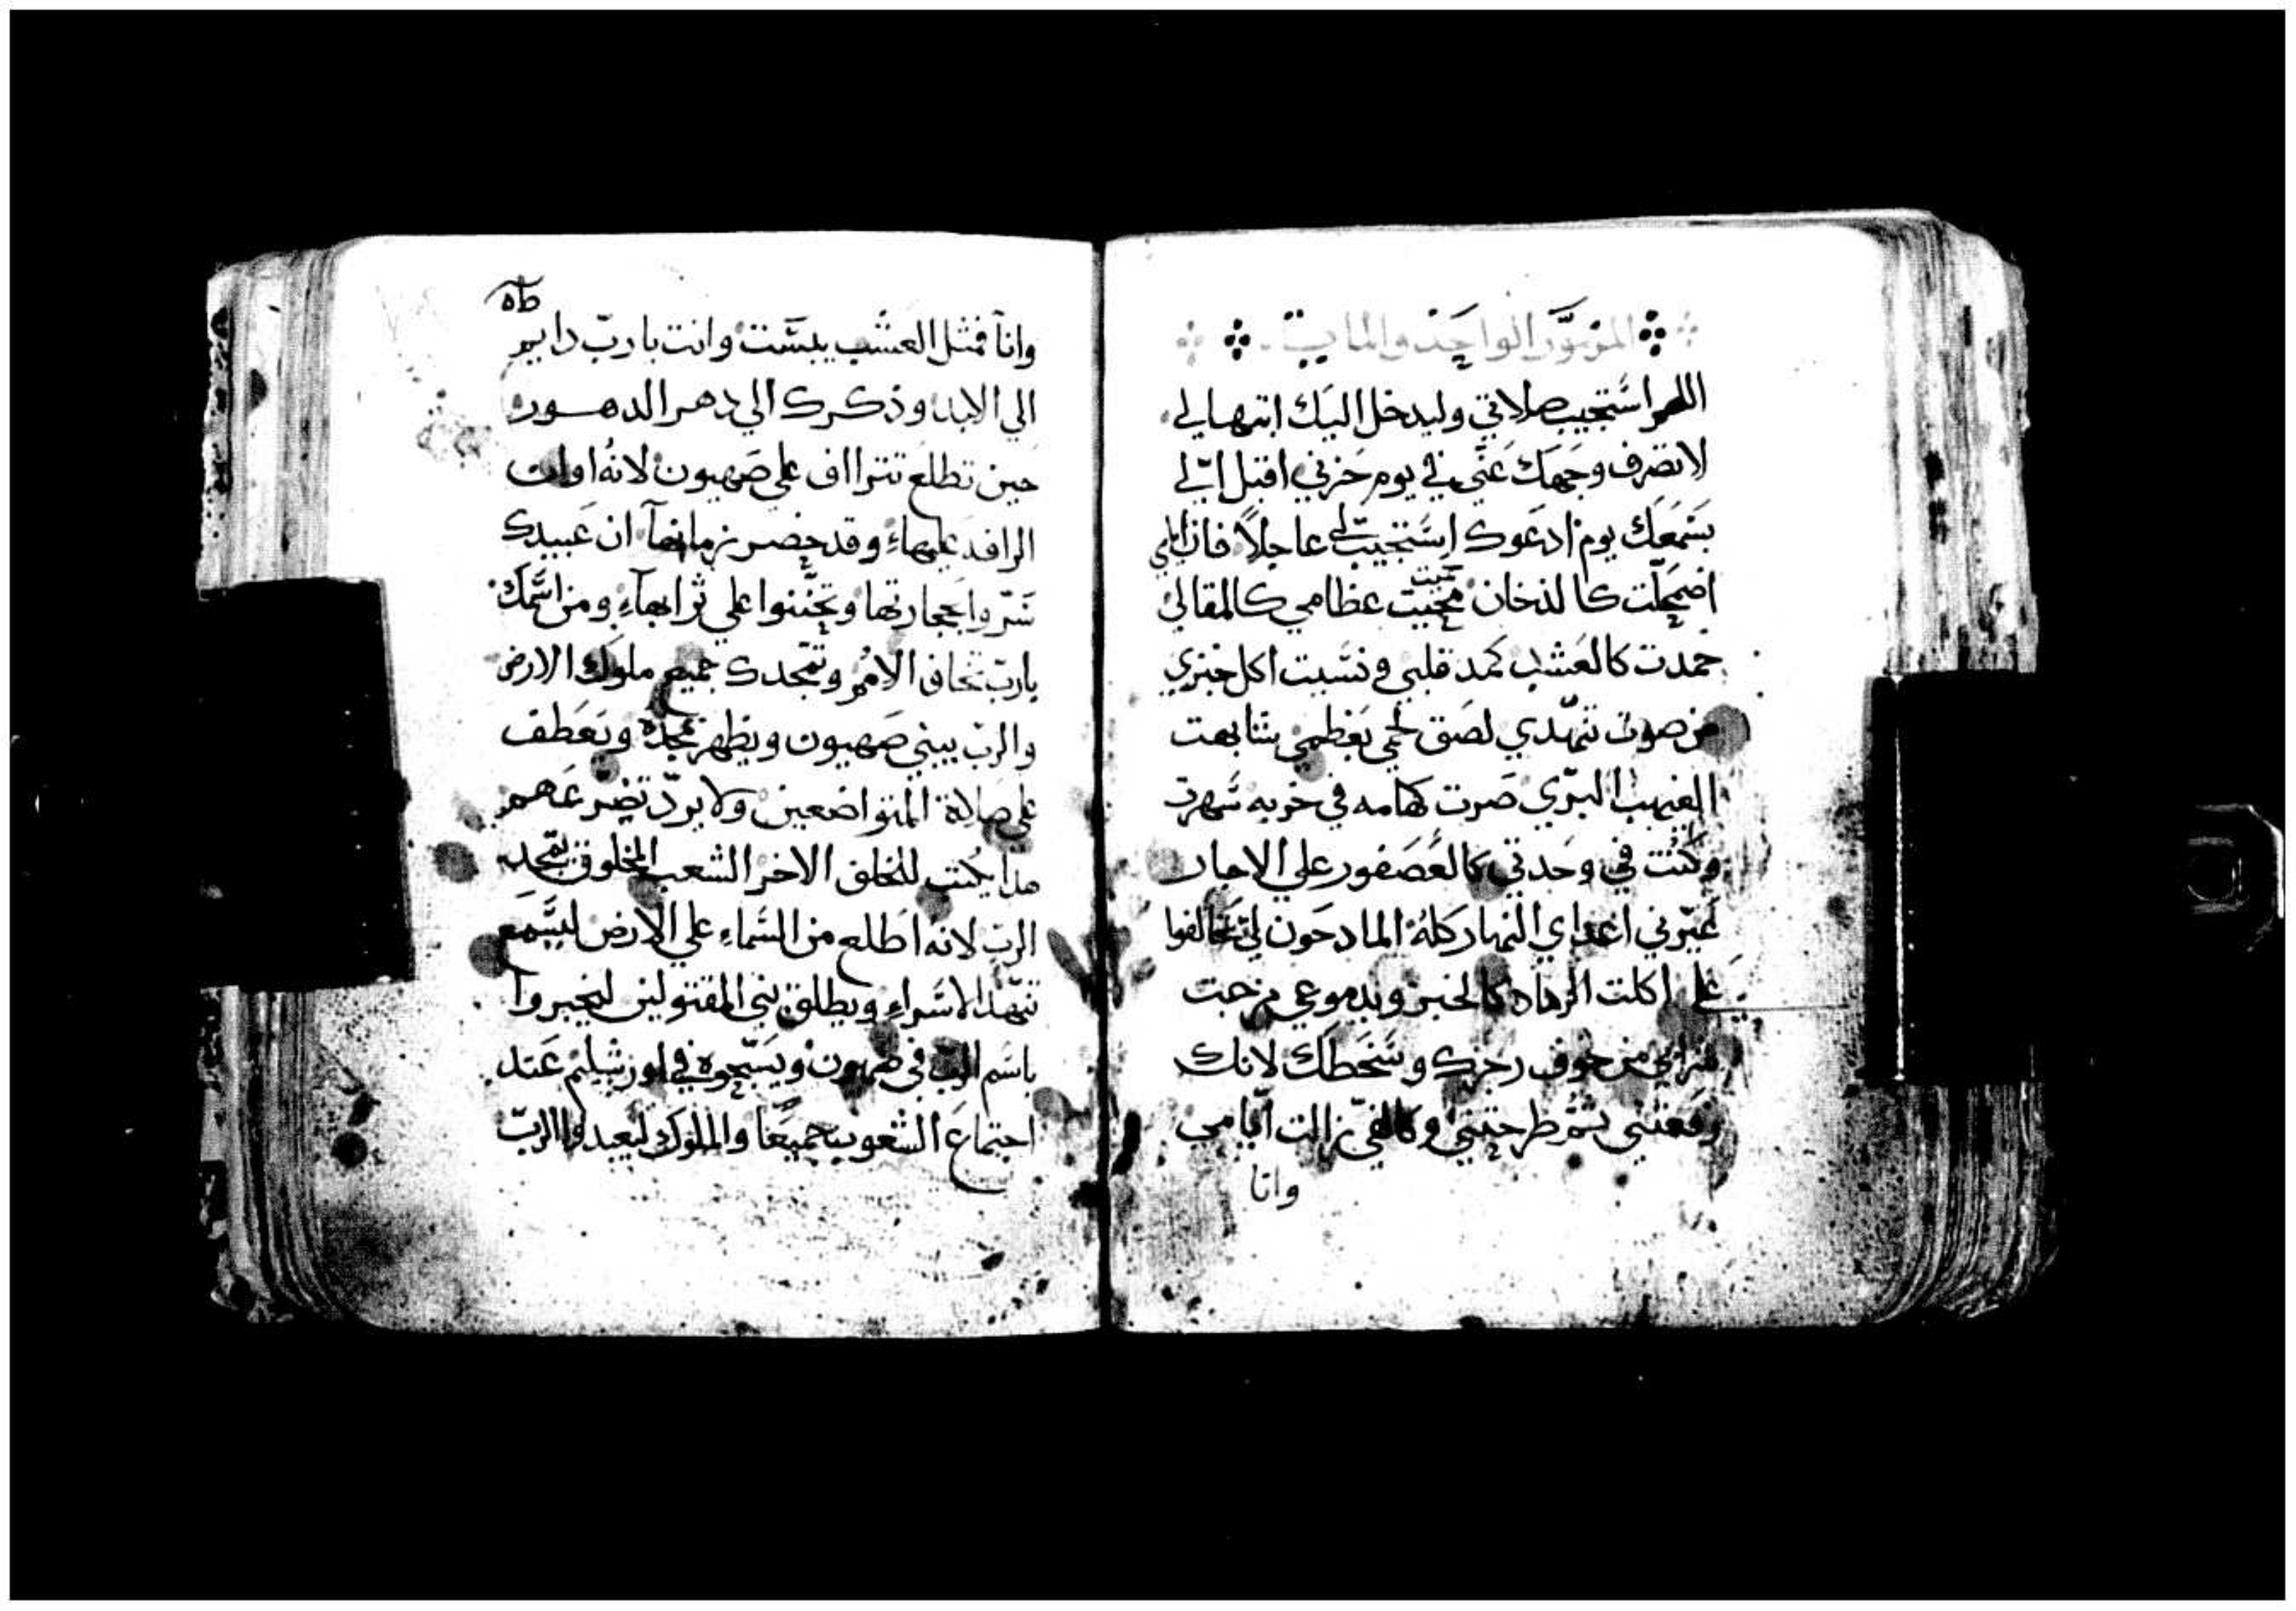 المزمور الواحد والماية
اللهم استجيب صلاتي وليدخل اليك ابتهالي
لا تصرف وجهك عني في يوم حزني اقبل الي
بسمعك يوم ادعوك استجيب لي عاجلاً فان ايامي
اضمحلت كالدخان محيت عظامي كالمقالي
خمدت كالعشب كمد قلبي ونسيت اكل خبزي
من صوت تنهدي لصق لحمي بعظمي شابهت
الغيهب البري صرت كهامه في خربه سهرت
وكنت في وحدتي كالعصفور علي الاجار
عيرني اعداي النهار كله المادحون لي تحالفوا
علي اكلت الرماد كالخبز وبدموعي مزجت
شرابي من خوف رجزك وسخطك لانك
رفعتني ثم طرحتني وكالفي زالت ايامي
وانا
وانا فمثل العشب يبست وانت يا رب دايم
الي الابد وذكرك الي دهر الدهور
حين تطلع تتراف علي صهيون لانه اوان
الرافه عليها وقد حضر زمانها ان عبيدك
سروا بحجارتها وتحننوا علي ترابها ومن اسمك
يارب تخاف الامم وتمجدك جميع ملوك الارض
والرب يبني صهيون ويظهر مجده ويعطف
علي صلاة المتواضعين ولا يرد تضرعهم
هذا يكتب للخلف الاخر الشعب المخلوق يمجد
الرب لانه اطلع من السماء علي الارض ليسمع
تنهد الاسراء ويطلق بني المقتولين ليخبروا
باسم الرب في صهيون ويسبحوه في اورشليم عند
اجتماع الشعوب جميعا والملوك ليعبدوا الرب